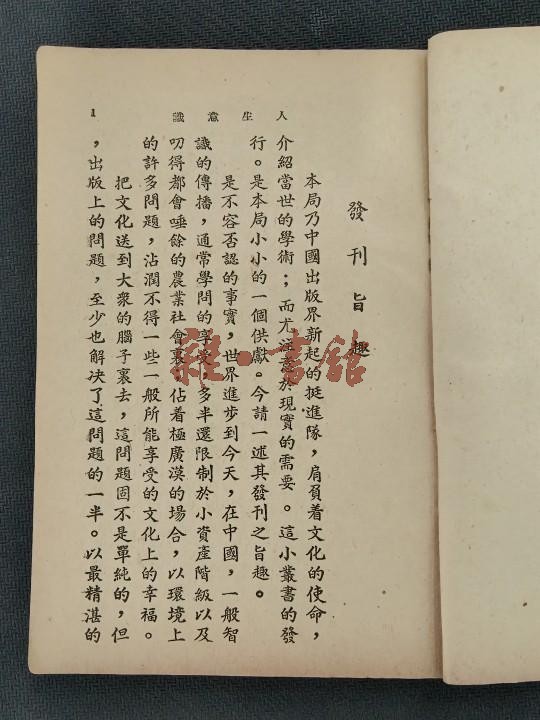 人生意識
1
發刊旨趣
本局乃中國出版界新起的挺進隊，肩負着文化的使命，
介紹當世的學術；而尤注意於現實的需要。這小叢書的發
行。是本局小小的一個供獻。今請一述其發刊之旨趣。
是不容否認的事實，世界進步到今天，在中國，一般智
識的傳播，通常學問的享受，多半還限制於小資產階級以及
叨得都會唾餘的農業社會裏，佔着極廣漠的場合，以環境上
的許多問題，沾潤不得一些一般所能享受的文化上的幸福。
把文化送到大衆的腦子裏去，這問題固不是單純的，但
，出版上的問題，至少也解决了這問題的一半。以最精湛的
雜·書館